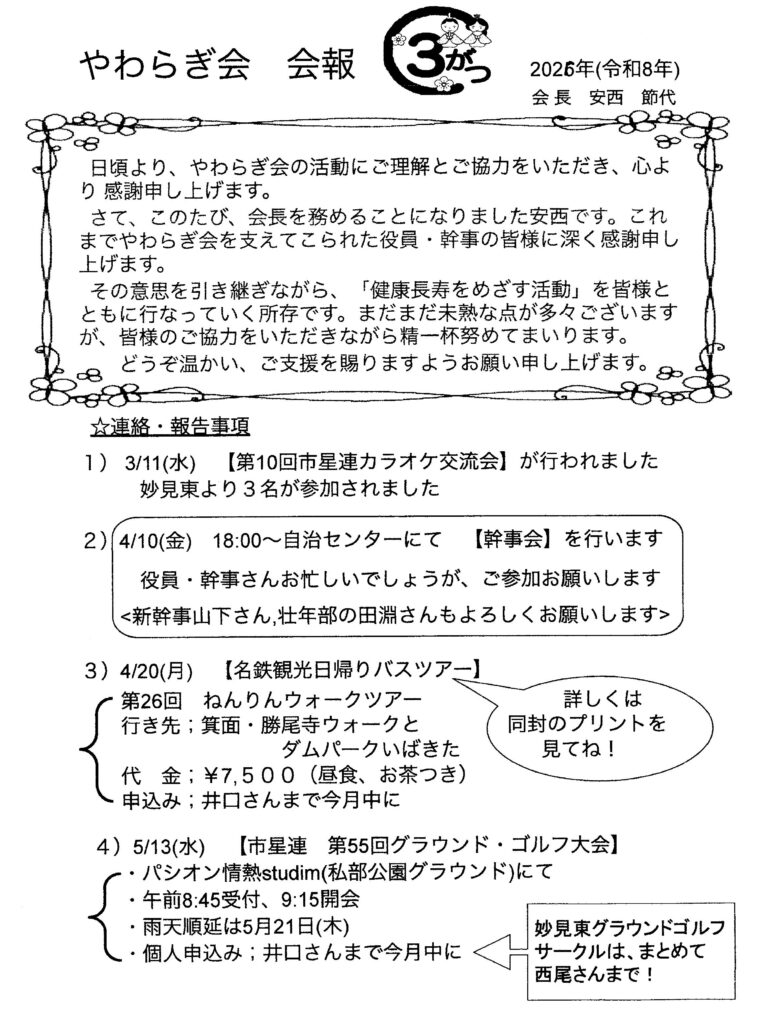 やわらぎ会　会報
3がつ
2026年(令和8年)
会 長　安西　節代
日頃より、やわらぎ会の活動にご理解とご協力をいただき、心よ
り 感謝申し上げます。
さて、このたび、会長を務めることになりました安西です。これ
までやわらぎ会を支えてこられた役員・幹事の皆様に深く感謝申し
上げます。
その意思を引き継ぎながら、「健康長寿をめざす活動」を皆様と
ともに行なっていく所存です。まだまだ未熟な点が多々ございます
が、皆様のご協力をいただきながら精一杯努めてまいります。
どうぞ温かい、ご支援を賜りますようお願い申し上げます。
☆連絡・報告事項
１） 3/11(水)　【第10回市星連カラオケ交流会】が行われました
妙見東より３名が参加されました
２） 4/10(金)　18:00～自治センターにて　【幹事会】を行います
役員・幹事さんお忙しいでしょうが、ご参加お願いします
<新幹事山下さん,壮年部の田淵さんもよろしくお願いします>
３）4/20(月)　【名鉄観光日帰りバスツアー】
第26回　ねんりんウォークツアー
行き先；箕面・勝尾寺ウォークと
ダムパークいばきた
代　金；￥7,５００（昼食、お茶つき）
申込み；井口さんまで今月中に
詳しくは
同封のプリントを
見てね！
４）5/13(水)　【市星連　第55回グラウンド・ゴルフ大会】
・パシオン情熱studim(私部公園グラウンド)にて
・午前8:45受付、9:15開会
・雨天順延は5月21日(木)
・個人申込み；井口さんまで今月中に
妙見東グラウンドゴルフ
サークルは、まとめて
西尾さんまで！